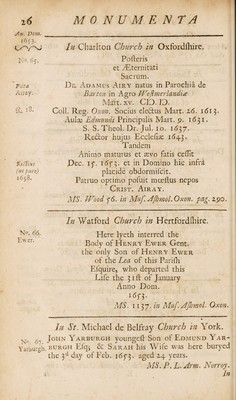 26 MONUMENTA
An. Dom.
1653.
In Charlton Church in Oxfordshire.
No. 65.
Posteris
et Æternitati
Sacrum.
Dr. ADAMUS AIRY natus in Parochiâ de
Barton in Agro Westmerlandiæ
Mart. XV. CIↃ. IↃ.
R. 18.
Coll. Reg. Oxon. Socius electus Mart. 26. 1613.
Aulæ Edmundi Principalis Mart. 9. 1631.
S. S. Theol. Dr. Jul. 10. 1637.
Rector hujus Ecclesiæ 1643.
Tandem
Animo maturus et ævo satis cessit
Dec. 15. 1653. et in Domino hic infrà
placidè obdormiscit.
1638.
Patruo optimo posuit mœstus nepos
CRIST. AIRAY.
MS. Wood 56. in Mus. Ashmol. Oxon. pag. 290.
In Watford Church in Hertfordshire.
No. 66.
Ewer.
Here lyeth interred the
Body of HENRY EWER Gent.
the only Son of HENRY EWER
of the Lea of this Parish
Esquire, who departed this
Life the 31st of January
Anno Dom.
1653.
MS. 1137. in Mus. Ashmol. Oxon.
In St. Michael de Belfray Church in York.
No. 67.
Yarburgh.
JOHN YARBURGH youngest Son of EDMUND YAR-
BURGH Esq; & SARAH his Wife was here buryed
the 3d day of Feb. 1653. aged 24 years.
MS. P. L. Arm. Norroy.
In